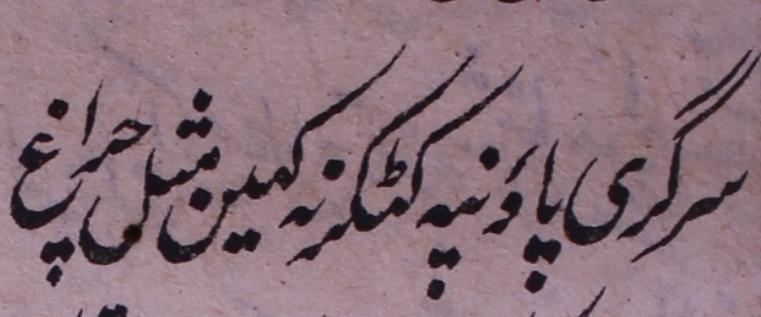 سر گری پاؤنپہ کٹکر نہ کہین مثل چراغ